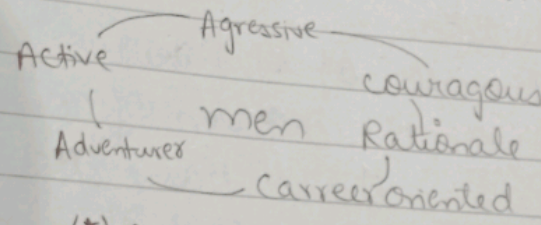 Agressive
Active
couragous
men Rationale
Adventurer
Carreer oriented